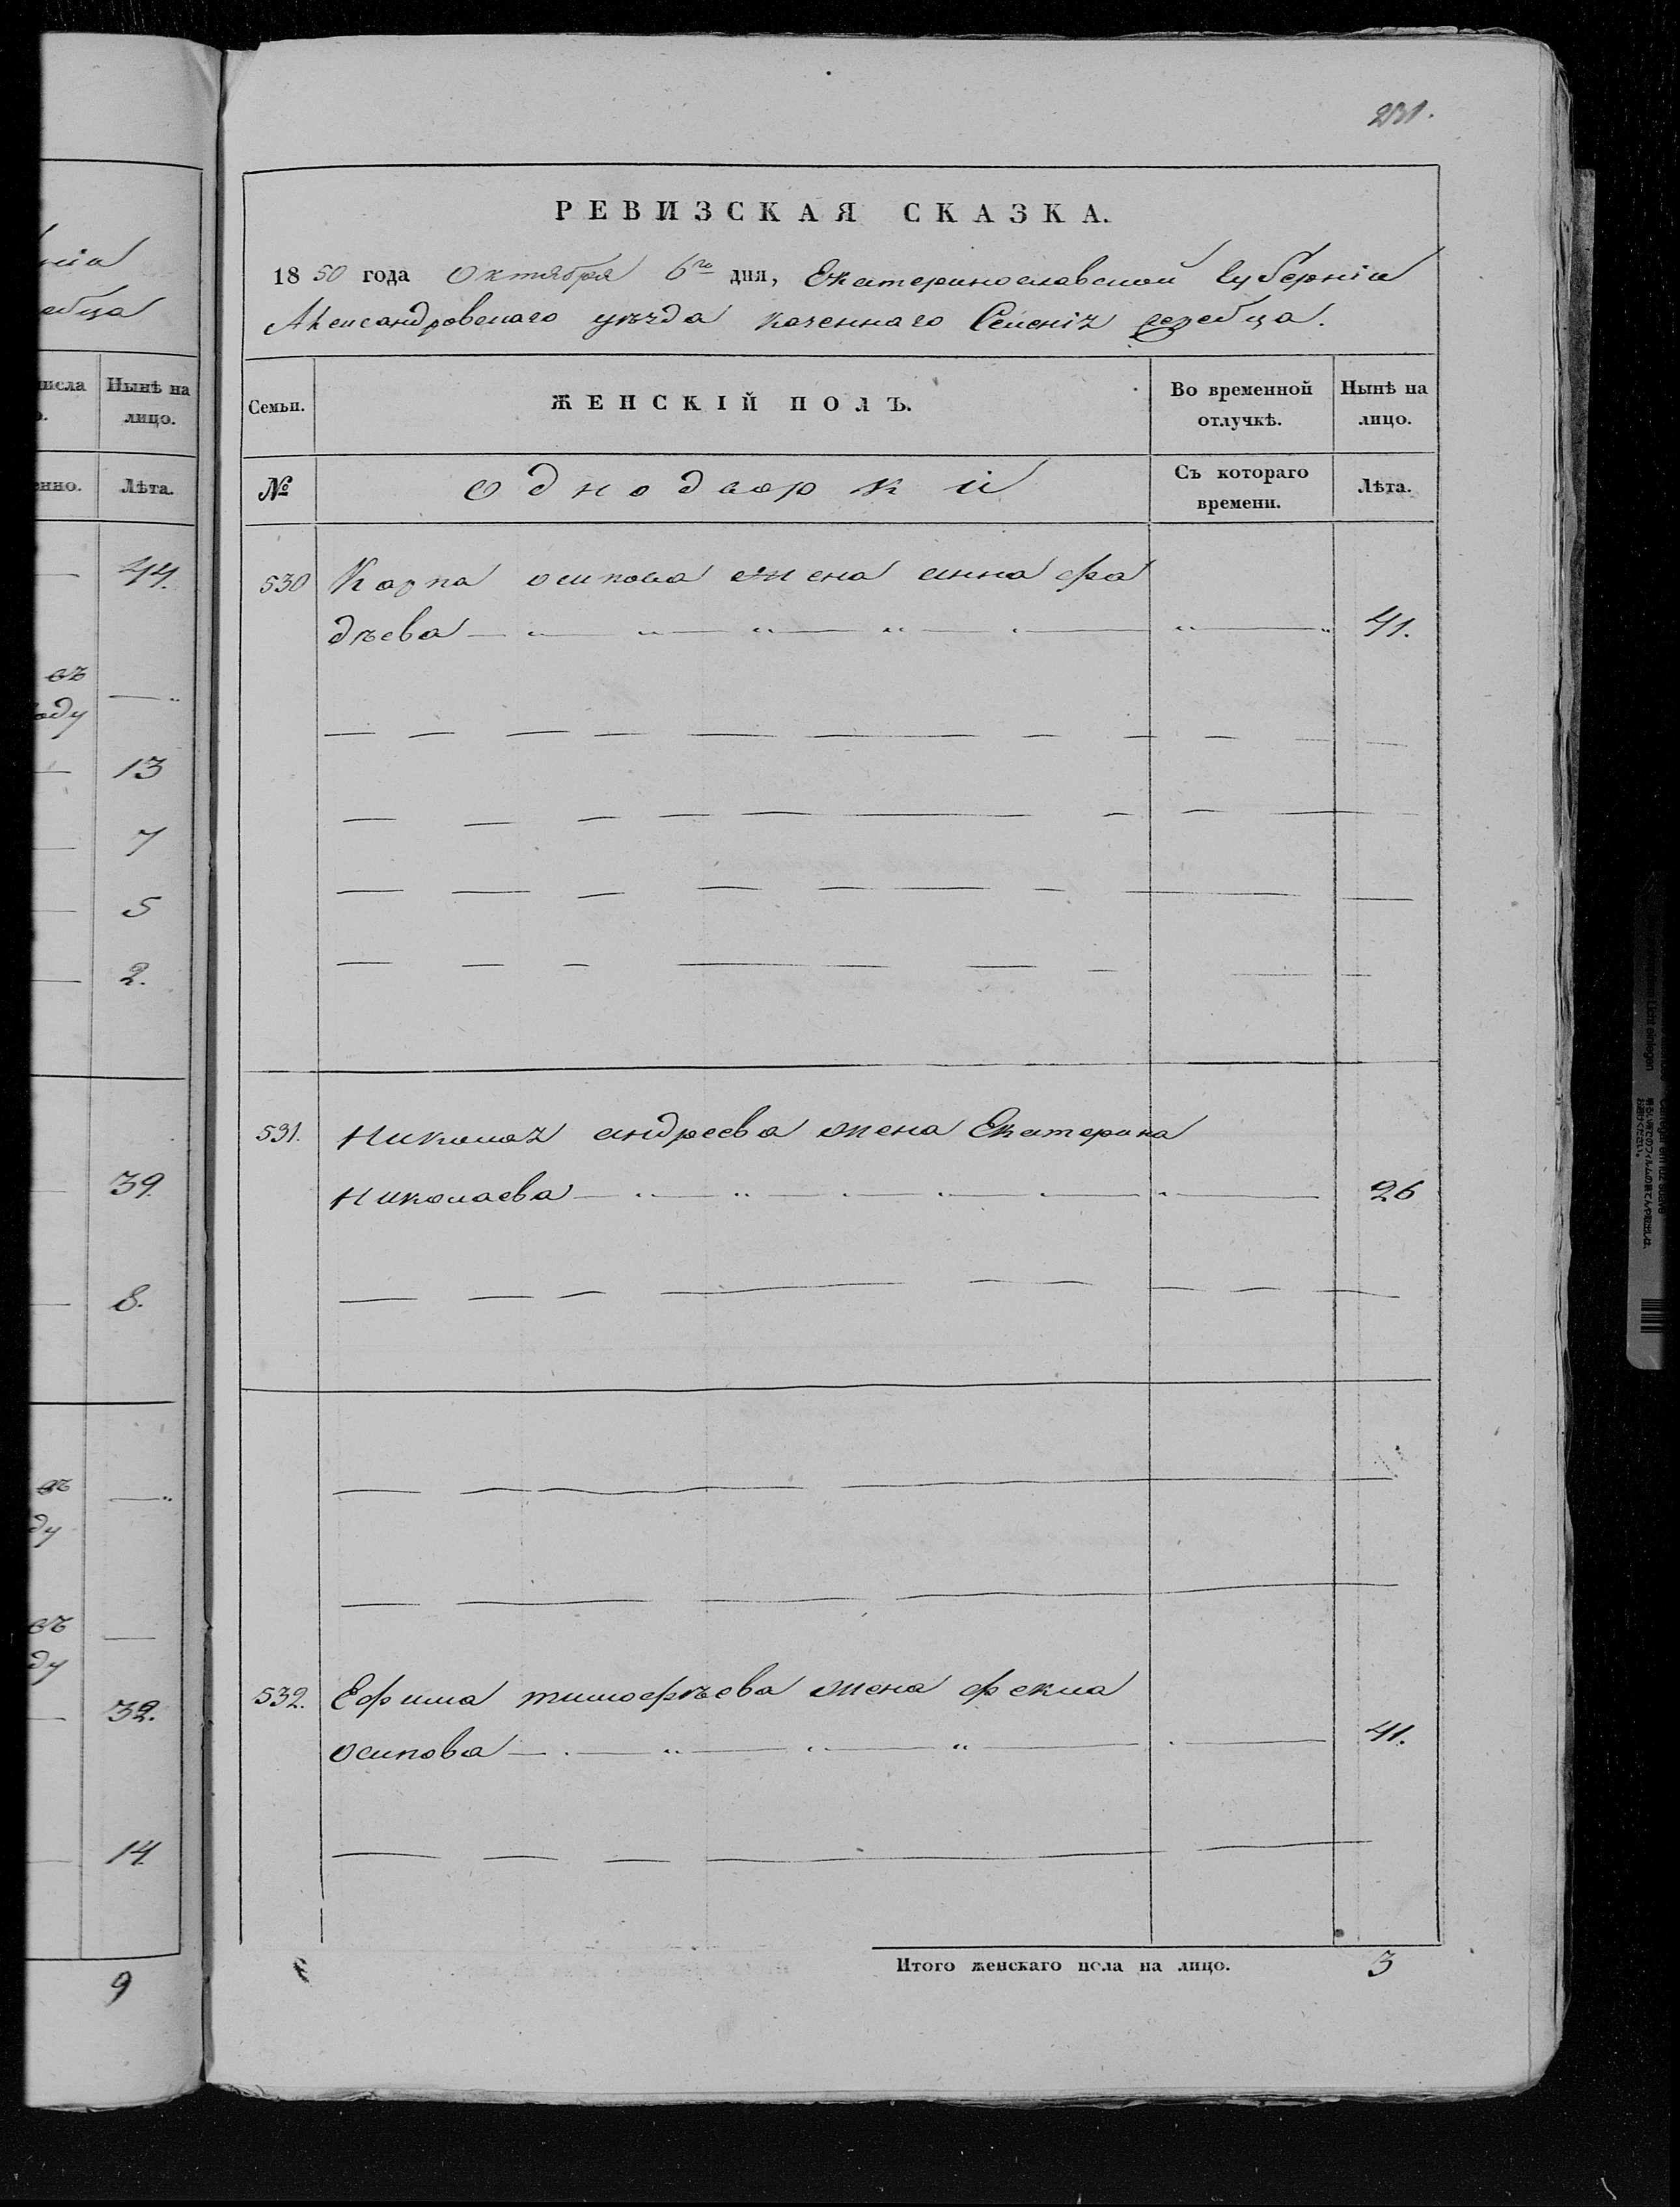 231.
РЕВИЗСКАЯ СКАЗКА.
1850 года Октября 6го дня, Екатеринославской Губерніи
Александровскаго уѣзда казеннаго Селенія жеребца.
Семьи. ЖЕНСКІЙ ПОЛЪ. Во временной отлучкѣ. Нынѣ на лицо.
№ Однодворкии Съ котораго времени. Лѣта.
530 Карпа осипова жена анна фа
дѣева 41.
531. Николая андреева жена Екатерина
Николаева 26
532. Ефима тимофѣева жена фекла
осипова 41.
Итого женскаго пола на лицо. 3
нія
ебца
числа Нынѣ на
о. лицо.
енно. Лѣта.
44.
въ
оду
13
7
5
2.
39.
8.
въ
ду
въ
ду
32.
14
9